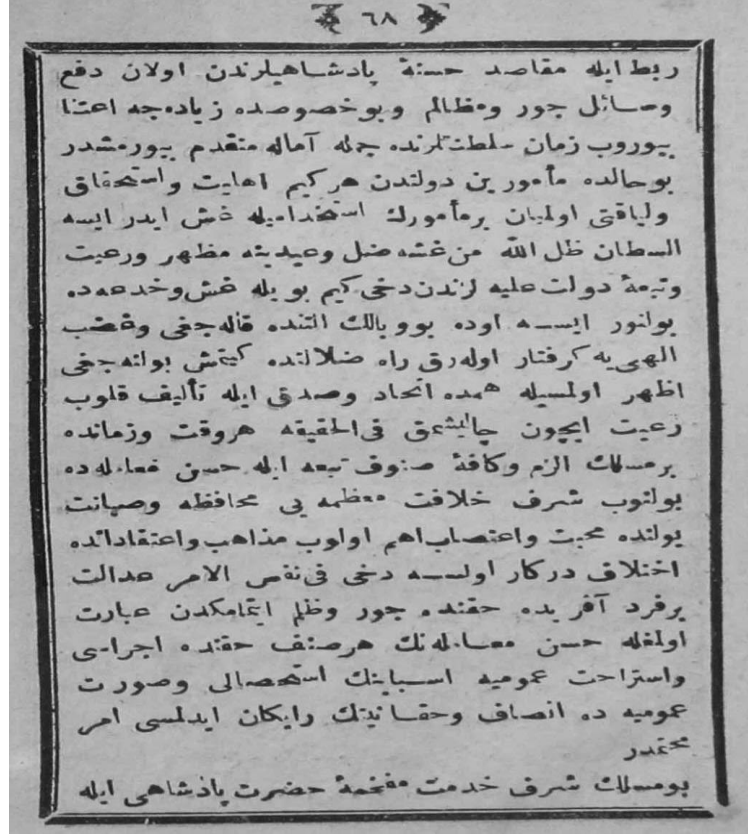 ٦٨
ربط ایله مقاصد حسنهٔ پادشاهیلرندن اولان دفع
وسائل جور ومظالم وبو خصوصده زیاده‌جه اعتنا
بیوروب زمان سلطنتلرنده جمله آماله متقدم بیورمشدر
بو حالده مأمورین دولتدن هرکیم اهلیت واستحقاق
ولیاقتی اولمیان برمأمورك استخدامیله غش ایدر ایسه
السطان ظل الله من غشه ضل وعیدینه مظهر ورعیت
وتبعهٔ دولت علیه لرندن دخی کیم بویله غش وخدعه‌ده
بولنور ایسه اوده بووبالك التنده قاله‌جغی وغضب
الهی‌یه کرفتار اوله‌رق راه ضلالتده کیتمش بولنه‌جغی
اظهر اولمسیله همده اتحاد وصدق ایله تألیف قلوب
رعیت ایچون چالیشمق فی‌الحقیقه هروقت وزمانده
برمسلك الزم وکافهٔ صنوف تبعه ایله حسن معامله‌ده
بولنوب شرف خلافت معظمه‌یی محافظه وصیانت
یولنده محبت واعتصاب اهم اولوب مذاهب واعتقاداتده
اختلاف درکار اولسه دخی فی نفس الامر عدالت
برفرد آفریده حقنده جور وظلم ایتمامکدن عبارت
اولمغله حسن معامله‌نك هرصنف حقنده اجراسی
واستراحت عمومیه اسبابنك استحصالی وصورت
عمومیه ده انصاف وحقانیتك رایکان ایدلمسی امر
محتمدر
بومسلك شرف خدمت مفخمهٔ حضرت پادشاهی ایله